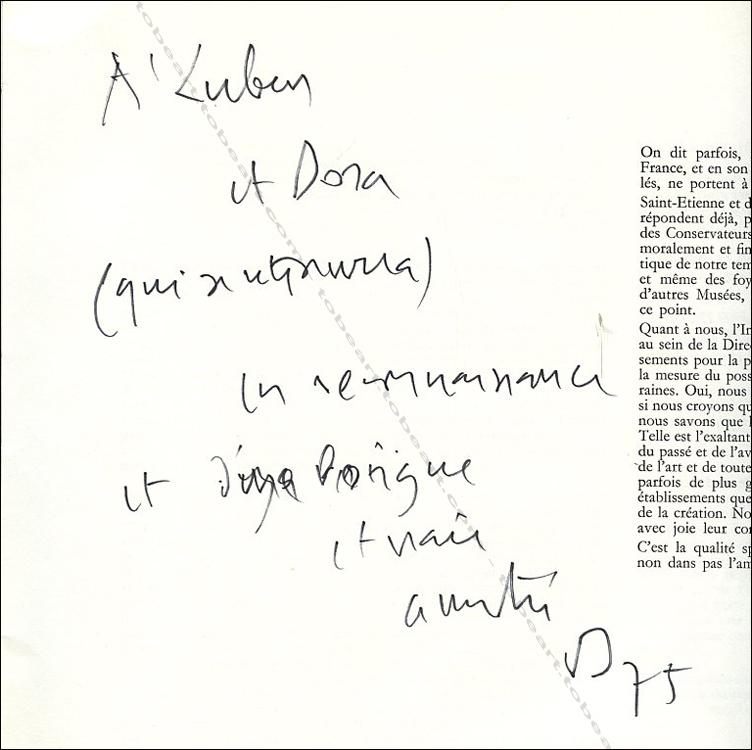 A' Luben
et Dora
(qui se retrouvera)
en reconnaissance
et déjà longue
et vraie
amitié
75
On dit parfois,
France, et en son
lés, ne portent à
Saint-Etienne et d
répondent déjà, p
des Conservateurs
moralement et fin
tique de notre tem
et même des foy
d'autres Musées,
ce point.
Quant à nous, l'In
au sein de la Dire
sements pour la p
la mesure du poss
raines. Oui, nous
si nous croyons qu
nous savons que l
Telle est l'exaltant
du passé et de l'av
de l'art et de toute
parfois de plus g
établissements que
de la création. No
avec joie leur con
C'est la qualité sp
non dans pas l'am
tobeart.com